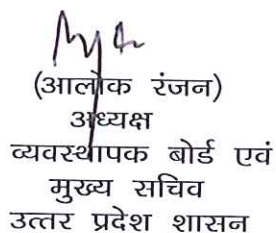 (आलोक रंजन)
अध्यक्ष
व्यवस्थापक बोर्ड एवं
मुख्य सचिव
उत्तर प्रदेश शासन